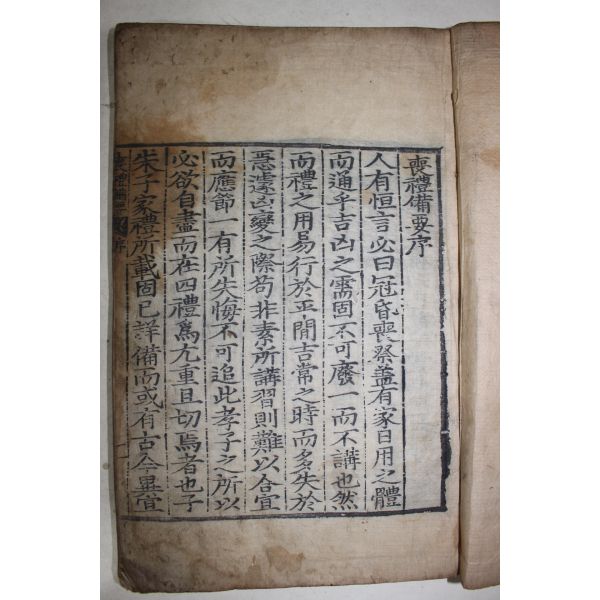 喪禮備要序
人有恒言必曰冠昏喪祭蓋有家日用之體
而通乎吉凶之需固不可廢一而不講也然
而禮之用易行於平閒吉常之時而多失於
急遽凶變之際苟非素所講習則難以合宜
而應節一有所失悔不可追此孝子之所以
必欲自盡而在四禮爲尤重且切焉者也子
朱子家禮所載固已詳備而或有古今異宜
喪禮備要 序